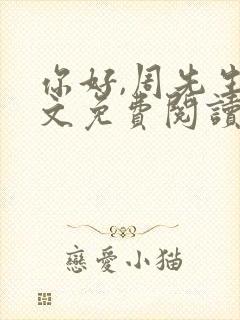 你好,周先生
文免費閱讀
戀愛小猫